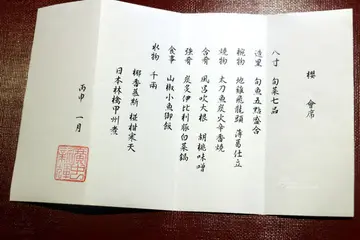 櫻 會席
八寸 旬菜七品
造里 旬魚五點盛合
椀物 飛龍頭 薄葛仕立
燒物 太刀魚炭火辛香燒
合肴 風呂吹大根 胡桃味噌
強肴 炭炙伊比利豚白菜鍋
食事 山椒小魚御飯
水物 千両
椰香慕斯 椪柑寒天
日本林檎甲州煮
丙申 一月